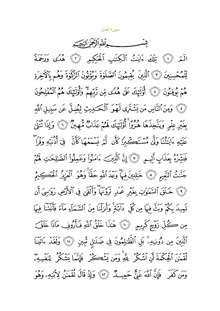 سورة لقمان
بِسْمِ ٱللَّهِ ٱلرَّحْمَٰنِ ٱلرَّحِيمِ
الٓمٓ ١ تِلْكَ ءَايَٰتُ ٱلْكِتَٰبِ ٱلْحَكِيمِ ٢ هُدًى وَرَحْمَةً
لِّلْمُحْسِنِينَ ٣ ٱلَّذِينَ يُقِيمُونَ ٱلصَّلَوٰةَ وَيُؤْتُونَ ٱلزَّكَوٰةَ وَهُم بِٱلْءَاخِرَةِ
هُمْ يُوقِنُونَ ٤ أُو۟لَٰٓئِكَ عَلَىٰ هُدًى مِّن رَّبِّهِمْ وَأُو۟لَٰٓئِكَ هُمُ ٱلْمُفْلِحُونَ
٥ وَمِنَ ٱلنَّاسِ مَن يَشْتَرِى لَهْوَ ٱلْحَدِيثِ لِيُضِلَّ عَن سَبِيلِ ٱللَّهِ
بِغَيْرِ عِلْمٍ وَيَتَّخِذَهَا هُزُوًا أُو۟لَٰٓئِكَ لَهُمْ عَذَابٌ مُّهِينٌ ٦ وَإِذَا تُتْلَىٰ
عَلَيْهِ ءَايَٰتُنَا وَلَّىٰ مُسْتَكْبِرًا كَأَن لَّمْ يَسْمَعْهَا كَأَنَّ فِىٓ أُذُنَيْهِ وَقْرًا
فَبَشِّرْهُ بِعَذَابٍ أَلِيمٍ ٧ إِنَّ ٱلَّذِينَ ءَامَنُوا۟ وَعَمِلُوا۟ ٱلصَّٰلِحَٰتِ لَهُمْ
جَنَّٰتُ ٱلنَّعِيمِ ٨ خَٰلِدِينَ فِيهَا وَعْدَ ٱللَّهِ حَقًّا وَهُوَ ٱلْعَزِيزُ ٱلْحَكِيمُ
٩ خَلَقَ ٱلسَّمَٰوَٰتِ بِغَيْرِ عَمَدٍ تَرَوْنَهَا وَأَلْقَىٰ فِى ٱلْأَرْضِ رَوَٰسِىَ أَن
تَمِيدَ بِكُمْ وَبَثَّ فِيهَا مِن كُلِّ دَآبَّةٍ وَأَنزَلْنَا مِنَ ٱلسَّمَآءِ مَآءً فَأَنۢبَتْنَا فِيهَا
مِن كُلِّ زَوْجٍ كَرِيمٍ ١٠ هَٰذَا خَلْقُ ٱللَّهِ فَأَرُونِى مَاذَا خَلَقَ
ٱلَّذِينَ مِن دُونِهِۦ بَلِ ٱلظَّٰلِمُونَ فِى ضَلَٰلٍ مُّبِينٍ ١١ وَلَقَدْ ءَاتَيْنَا
لُقْمَٰنَ ٱلْحِكْمَةَ أَنِ ٱشْكُرْ لِلَّهِ وَمَن يَشْكُرْ فَإِنَّمَا يَشْكُرُ لِنَفْسِهِۦ
وَمَن كَفَرَ فَإِنَّ ٱللَّهَ غَنِىٌّ حَمِيدٌ ١٢ وَإِذْ قَالَ لُقْمَٰنُ لِٱبْنِهِۦ وَهُوَ